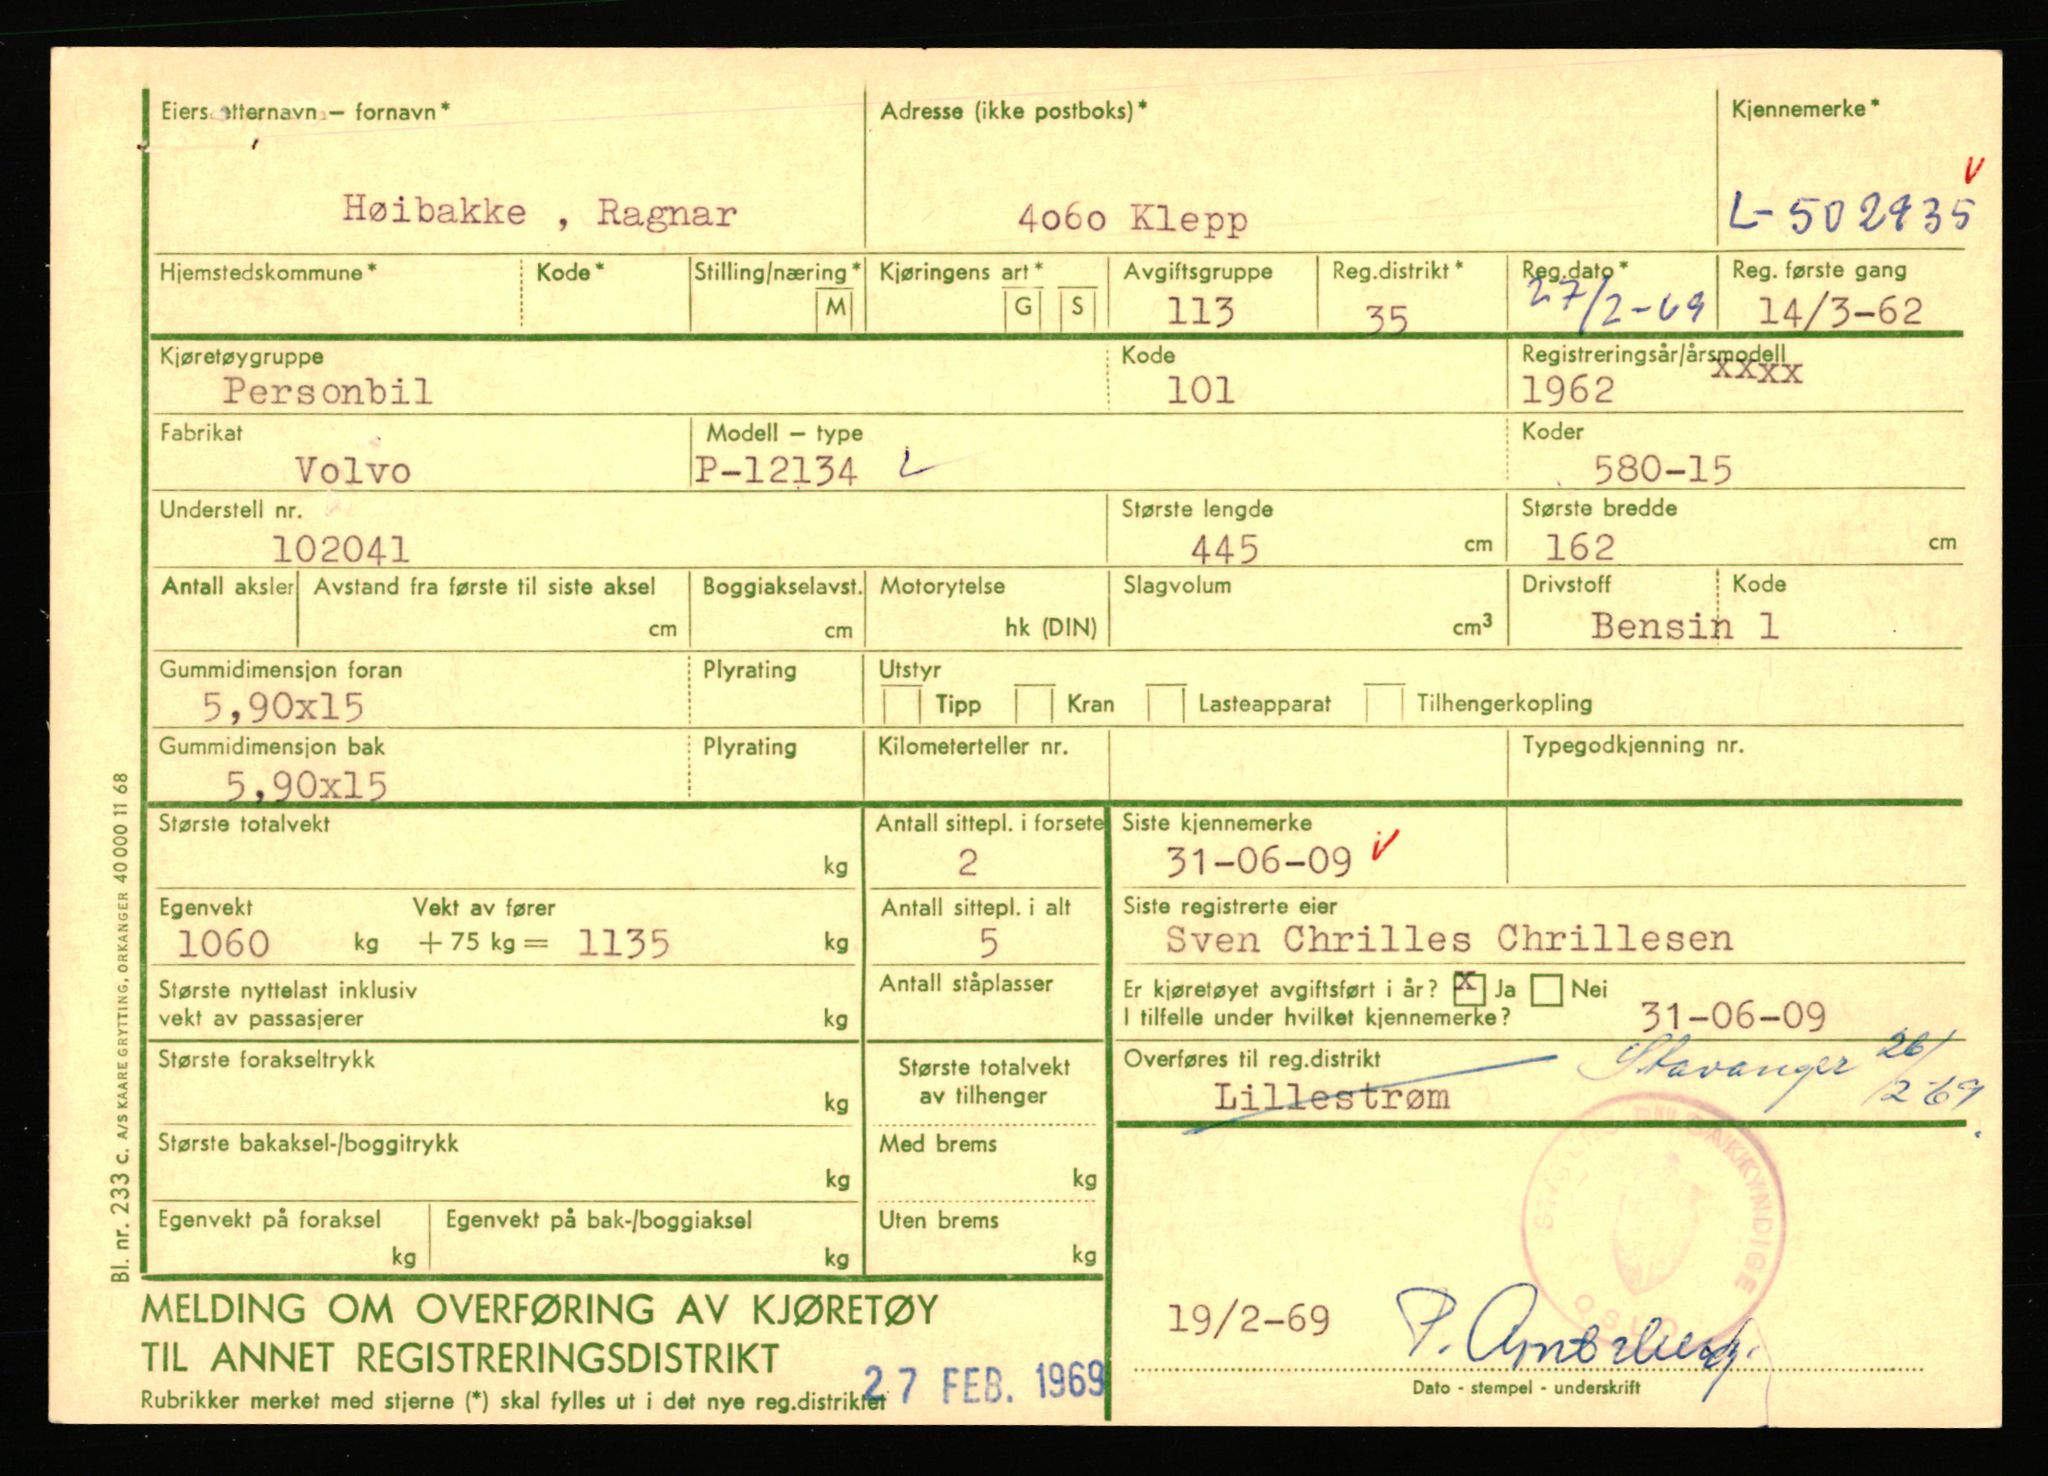 Eiers etternavn – fornavn* Adresse (ikke postboks)* Kjennemerke*
Høibakke , Ragnar 4060 Klepp L-502935
Hjemstedskommune* Kode* Stilling/næring* Kjøringens art* Avgiftsgruppe Reg.distrikt* Reg.dato* Reg. første gang
M G S 113 35 27/2-69 14/3-62
Kjøretøygruppe Kode Registreringsår/årsmodell
Personbil 101 1962 xxxx
Fabrikat Modell – type Koder
Volvo P-12134 580-15
Understell nr. Største lengde Største bredde
102041 445 cm 162 cm
Antall aksler Avstand fra første til siste aksel Boggiakselavst. Motorytelse Slagvolum Drivstoff Kode
cm cm hk (DIN) cm3 Bensin 1
Gummidimensjon foran Plyrating Utstyr
5,90x15 Tipp Kran Lasteapparat Tilhengerkopling
Gummidimensjon bak Plyrating Kilometerteller nr. Typegodkjenning nr.
5,90x15
Største totalvekt Antall sittepl. i forsete Siste kjennemerke
kg 2 31-06-09
Egenvekt Vekt av fører Antall sittepl. i alt Siste registrerte eier
1060 kg + 75 kg = 1135 kg 5 Sven Chrilles Chrillesen
Største nyttelast inklusiv Antall ståplasser Er kjøretøyet avgiftsført i år? x Ja Nei
vekt av passasjerer kg I tilfelle under hvilket kjennemerke? 31-06-09
Største forakseltrykk Største totalvekt Overføres til reg.distrikt Stavanger 26/2-69.
kg av tilhenger Lillestrøm
Største bakaksel-/boggitrykk Med brems
kg kg
Egenvekt på foraksel Egenvekt på bak-/boggiaksel Uten brems
kg kg kg
STATENS BILSAKKYNDIGE
OSLO
MELDING OM OVERFØRING AV KJØRETØY
TIL ANNET REGISTRERINGSDISTRIKT
19/2-69 P.
Rubrikker merket med stjerne (*) skal fylles ut i det nye reg.distriktet 27 FEB. 1969 Dato - stempel - underskrift
Bl. nr. 233 c. A/S KAARE GRYTTING, ORKANGER 40 000 11 68